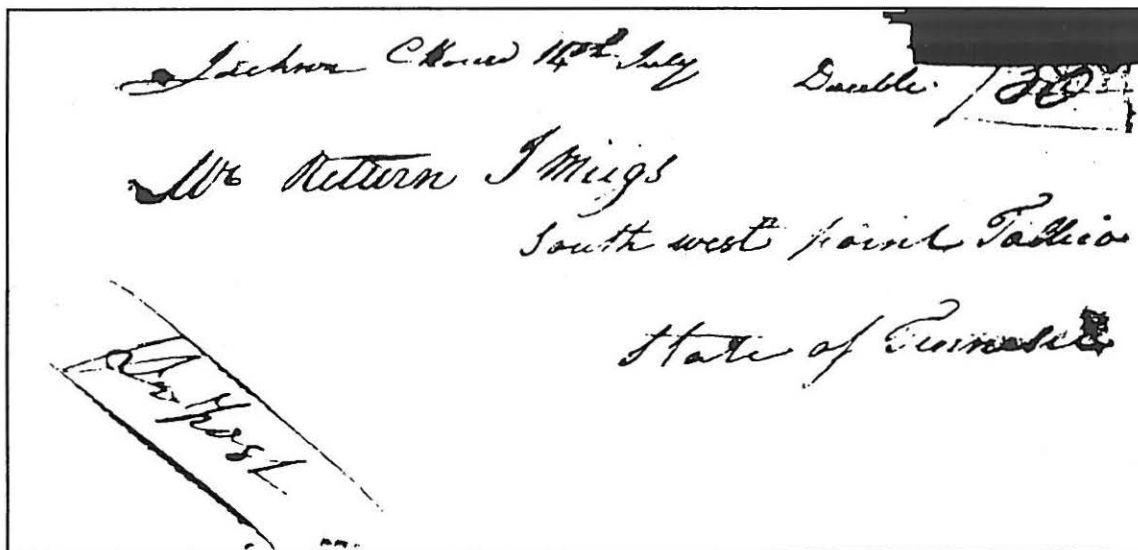 Jackson CHouse 14th July Double. 30
Mr Return J Miigs
South west point Tellico
State of Tennessee
Pr Post